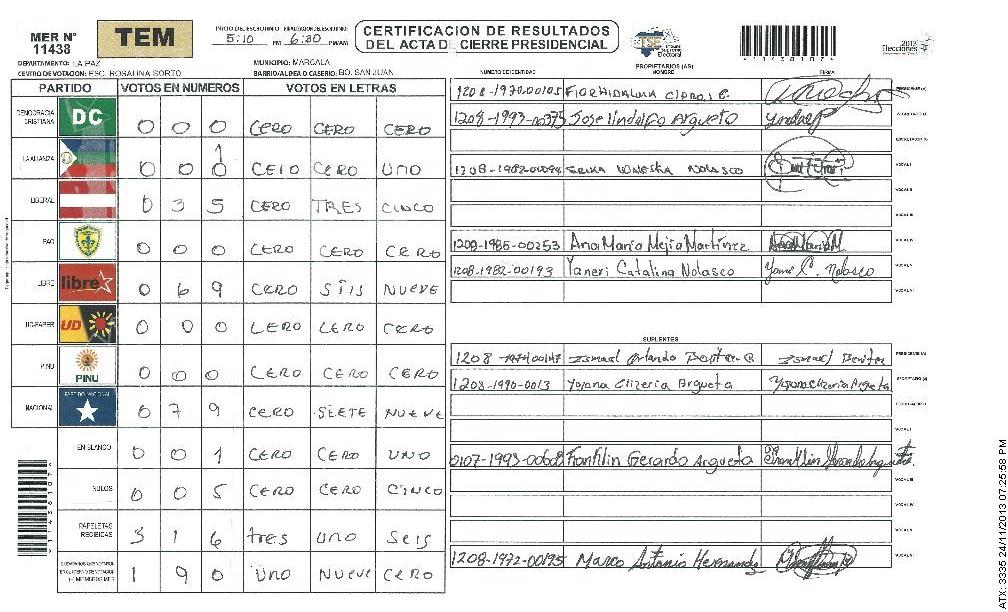 MER N° 11438
TEM
INICIO DEL ESCRUTINIO: 5:10 PM 6:30 PM/AM
CERTIFICACION DE RESULTADOS
DEL ACTA DE CIERRE PRESIDENCIAL
TSE Tribunal Supremo Electoral
Elecciones 2013
DEPARTAMENTO: LA PAZ
MUNICIPIO: MARCALA
CENTRO DE VOTACION: ESC. ROSALINA SORTO
BARRIO/ALDEA O CASERIO: BO. SAN JUAN
PARTIDO VOTOS EN NUMEROS VOTOS EN LETRAS
DEMOCRACIA CRISTIANA DC 0 0 0 CERO CERO CERO
LA ALIANZA 0 0 1 CERO CERO UNO
LIBERAL 0 3 5 CERO TRES CINCO
PAC 0 0 0 CERO CERO CERO
LIBRE libre 0 6 9 CERO SEIS NUEVE
UD-FAPER UD 0 0 0 CERO CERO CERO
PINU PINU 0 0 0 CERO CERO CERO
NACIONAL PARTIDO NACIONAL 0 7 9 CERO SIETE NUEVE
EN BLANCO 0 0 1 CERO CERO UNO
NULOS 0 0 5 CERO CERO CINCO
PAPELETAS RECIBIDAS 3 1 6 tres uno Seis
1 9 0 Uno NUEVE CERO
PROPIETARIOS (AS)
NUMERO DE IDENTIDAD NOMBRE FIRMA
PRESIDENTE (A)
1208-1993-00375 Jose lindolfo Argueta SECRETARIO (A)
ESCRUTADOR (A)
NOLASCO VOCAL I
VOCAL II
VOCAL III
1208-1985-00253 Ana Maria Mejia Martinez Ana Maria M. VOCAL IV
1208-1982-00193 Yaneri Catalina Nolasco Nolasco VOCAL V
VOCAL VI
SUPLENTES
1208 Ismael Orlando Benitez Ismael Benitez PRESIDENTE (A)
1208-1990-0013 Argueta Argueta SECRETARIO (A)
ESCRUTADOR (A)
VOCAL I
0107-1993-00608 Franklin Gerardo Argueta VOCAL II
VOCAL III
VOCAL IV
VOCAL V
1208-1972-00195 Marco Antonio Hernandez VOCAL VI
ATX: 3335 24/11/2013 07:25:58 PM